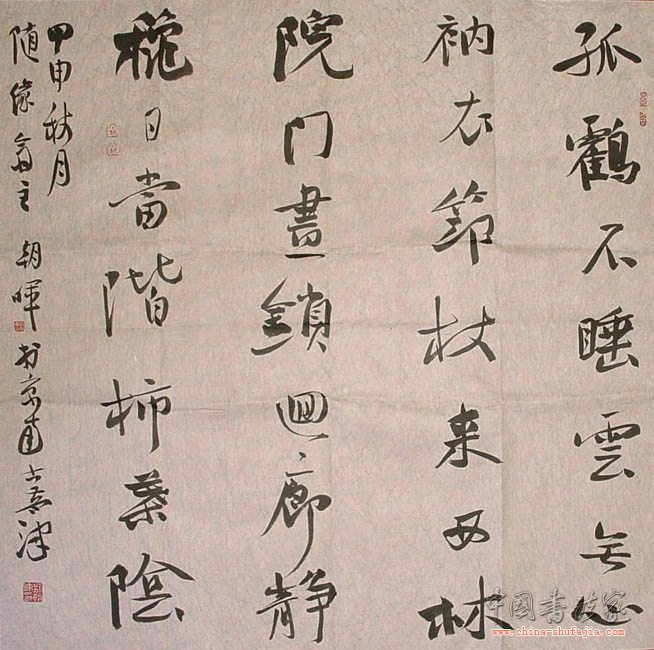 孤鶴不睡雲無心
衲衣筇杖来西林
院门晝鎖迴廊静
秋日當階柿葉陰
甲申秋月
随缘斋主 朝暉 书京南
中国书法家
www.china-shufajia.com